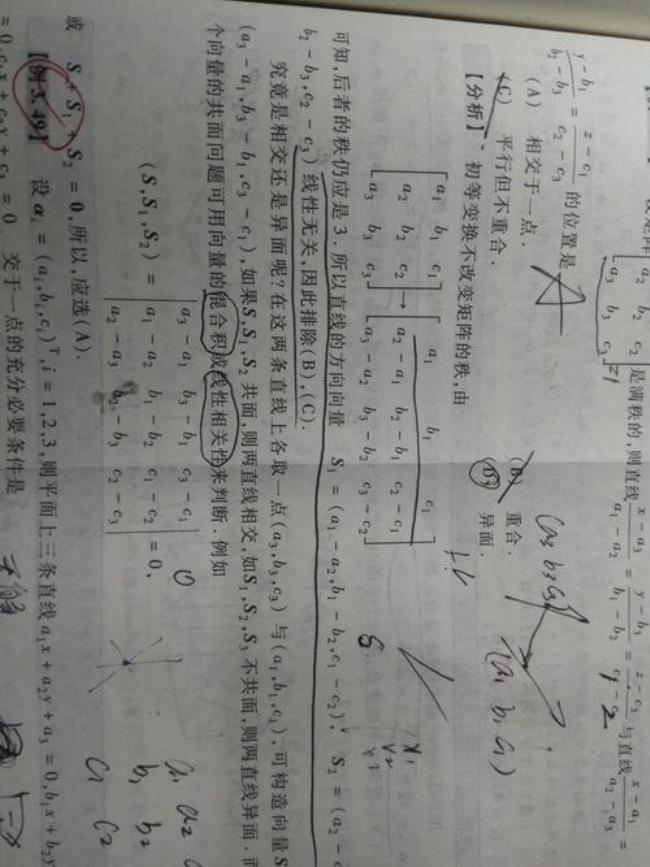 a₂ b₂ c₂
a₃ b₃ c₃ 是满秩的,则直线 (x - a₃)/(a₁ - a₂) = (y - b₃)/(b₁ - b₂) = (z - c₃)/(c₁ - c₂) 与直线 (x - a₁)/(a₂ - a₃) =
(y - b₁)/(b₂ - b₃) = (z - c₁)/(c₂ - c₃) 的位置是
(A) 相交于一点. (B) 重合.
(C) 平行但不重合. (D) 异面.
【分析】 初等变换不改变矩阵的秩,由
[a₁ b₁ c₁; a₂ b₂ c₂; a₃ b₃ c₃] → [a₁ b₁ c₁; a₂ - a₁ b₂ - b₁ c₂ - c₁; a₃ - a₂ b₃ - b₂ c₃ - c₂]
可知,后者的秩仍应是 3. 所以直线的方向向量 S₁ = (a₁ - a₂, b₁ - b₂, c₁ - c₂), S₂ = (a₂ -
b₂ - b₃, c₂ - c₃) 线性无关,因此排除(B),(C).
究竟是相交还是异面呢?在这两条直线上各取一点(a₃, b₃, c₃) 与 (a₁, b₁, c₁), 可构造向量 S
(a₃ - a₁, b₃ - b₁, c₃ - c₁), 如果 S, S₁, S₂ 共面,则两直线相交,如 S₁, S₂, S₃ 不共面,则两直线异面. 而
个向量的共面问题可用向量的混合积或线性相关性来判断. 例如
(S, S₁, S₂) = |a₃ - a₁ b₃ - b₁ c₃ - c₁; a₁ - a₂ b₁ - b₂ c₁ - c₂; a₂ - a₃ b₂ - b₃ c₂ - c₃| = 0,
或 S + S₁ + S₂ = 0, 所以,应选(A).
【例 3.49】 设 αᵢ = (aᵢ, bᵢ, cᵢ)ᵀ, i = 1,2,3, 则平面上三条直线 a₁x + a₂y + a₃ = 0, b₁x + b₂y
= 0, c₁x + c₂y + c₃ = 0 交于一点的充分必要条件是
(a₃ b₃ c₃)
(a₁ b₁ c₁)
a₁ a₂
b₁ b₂
c₁ c₂